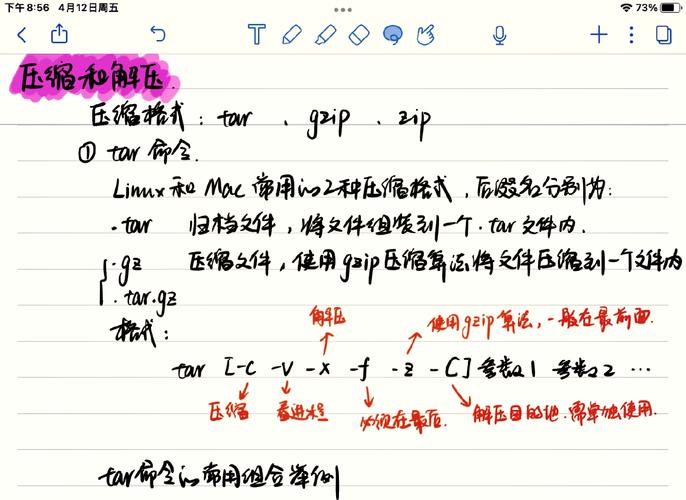 下午8:56 4月12日周五
73%
压缩和解压.
压缩格式：tar 、gzip 、zip
① tar 命令.
Linux 和 Mac 常用的2种压缩格式，后缀名分别为：
.tar 归档文件，将文件组装到一个.tar文件内.
.gz 压缩文件，使用gzip压缩算法将文件压缩到一个文件内
.tar.gz
格式：
解压
使用gzip算法，一般在最前面.
tar [-c -v -x -f -z -C] 参数1 参数2 ...
压缩
看进程
必须在最后.
解压目的地.需单独使用.
tar命令的常用组合举例